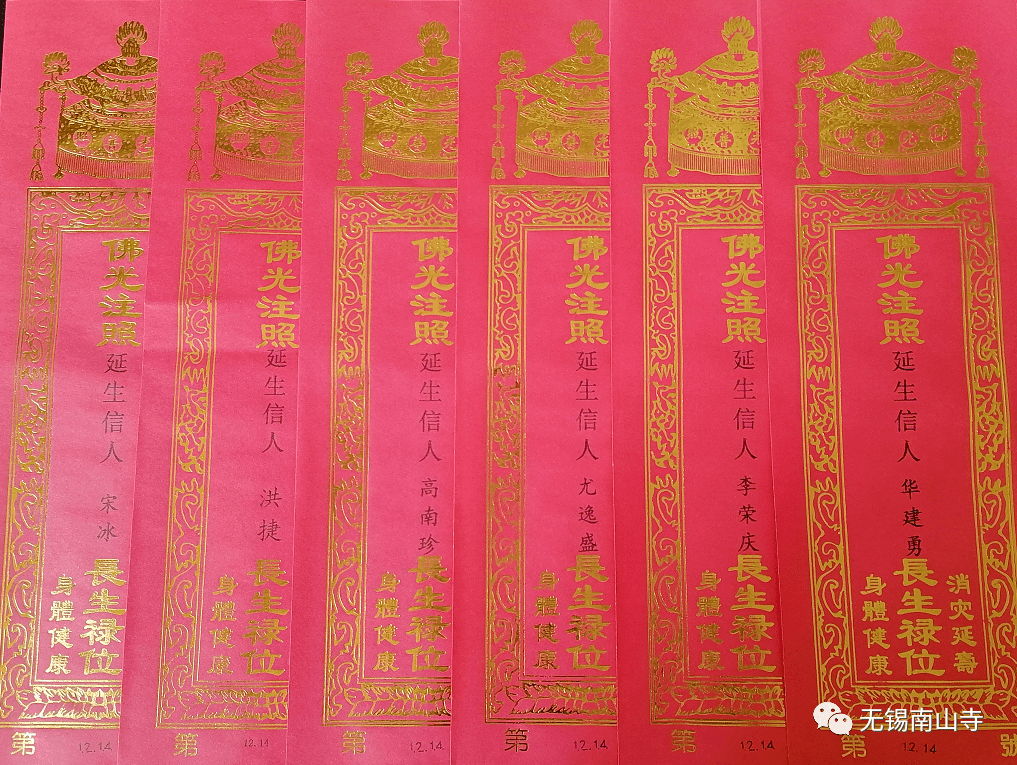 佛光注照
延生信人 宋冰
長生禄位
身體健康
第
12.14
佛光注照
延生信人 洪捷
長生禄位
身體健康
第
12.14
佛光注照
延生信人 高南珍
長生禄位
身體健康
第
12.14
佛光注照
延生信人 尤逸盛
長生禄位
身體健康
第
12.14
佛光注照
延生信人 李荣庆
長生禄位
身體健康
第
12.14
佛光注照
延生信人 华建勇
長生禄位
消灾延壽
身體健康
第 號
12.14
无锡南山寺